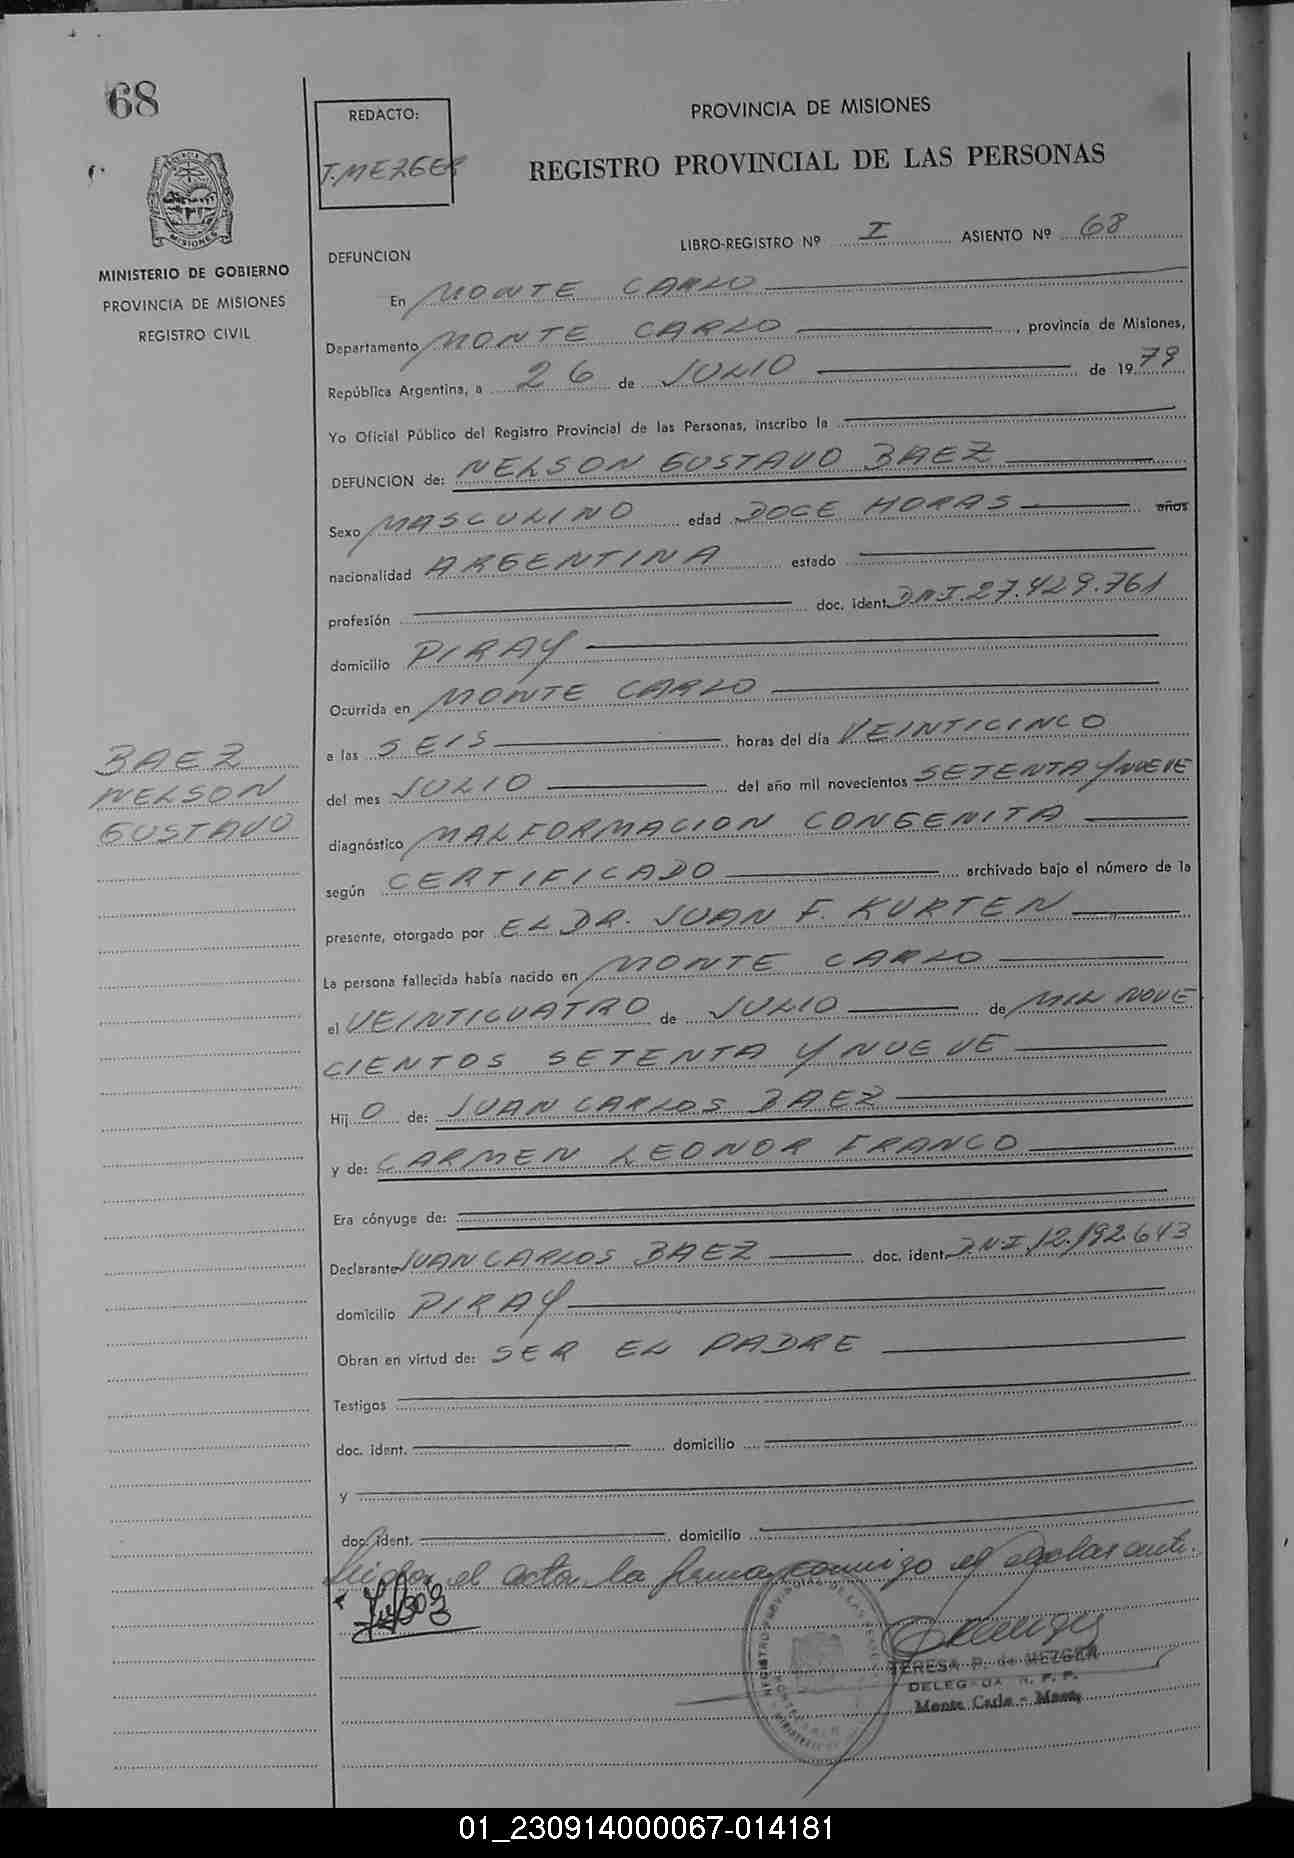 68
REDACTO:
T. MEZGER
PROVINCIA DE MISIONES
REGISTRO PROVINCIAL DE LAS PERSONAS
MISIONES
MINISTERIO DE GOBIERNO
PROVINCIA DE MISIONES
REGISTRO CIVIL
DEFUNCION
LIBRO-REGISTRO Nº I ASIENTO Nº 68
En MONTE CARLO
Departamento MONTE CARLO, provincia de Misiones,
República Argentina, a 26 de JULIO de 1979
Yo Oficial Público del Registro Provincial de las Personas, inscribo la
DEFUNCION de: NELSON GUSTAVO BAEZ
Sexo MASCULINO edad DOCE HORAS años
nacionalidad ARGENTINA estado
profesión doc. ident. D.N.I. 27.429.761
domicilio PIRAY
Ocurrida en MONTE CARLO
a las SEIS horas del día VEINTICINCO
BAEZ
NELSON
GUSTAVO
del mes JULIO del año mil novecientos SETENTA Y NUEVE
diagnóstico MALFORMACION CONGENITA
según CERTIFICADO archivado bajo el número de la
presente, otorgado por EL DR. JUAN F. KURTEN
La persona fallecida había nacido en MONTE CARLO
el VEINTICUATRO de JULIO de MIL NOVE
CIENTOS SETENTA Y NUEVE
Hij O de: JUAN CARLOS BAEZ
y de: CARMEN LEONOR FRANCO
Era cónyuge de:
Declarante JUAN CARLOS BAEZ doc. ident. D.N.I 12.192.643
domicilio PIRAY
Obran en virtud de: SER EL PADRE
Testigos
doc. ident. domicilio
y
doc. ident. domicilio
Leida el acta la firma conmigo el declarante.
TERESA P. de MEZGER
DELEGADA R. P. P.
Monte Carlo - Mnes.
01_230914000067-014181